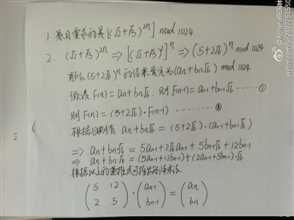 1. 题目要求的是 [(√2+√3)²ⁿ] mod 1024
2. (√2+√3)²ⁿ ⇒ [(√2+√3)²]ⁿ ⇒ (5+2√6)ⁿ mod 1024
(5+2√6)ⁿ 的结果 (an+bn√6) mod 1024
F(n) = an+bn√6 则 F(n-1) = an-1+bn-1√6 ①
则 F(n) = (5+2√6)·F(n-1) ②
an+bn√6 = (5+2√6)·(an-1+bn-1√6)
⇒ an+bn√6 = 5an-1+2√6an-1+5bn-1√6+12bn-1
⇒ an+bn√6 = (5an-1+12bn-1)+(2an-1+5bn-1)√6
根据以上的
(5 12
2 5) · (an-1
bn-1) = (an
bn)